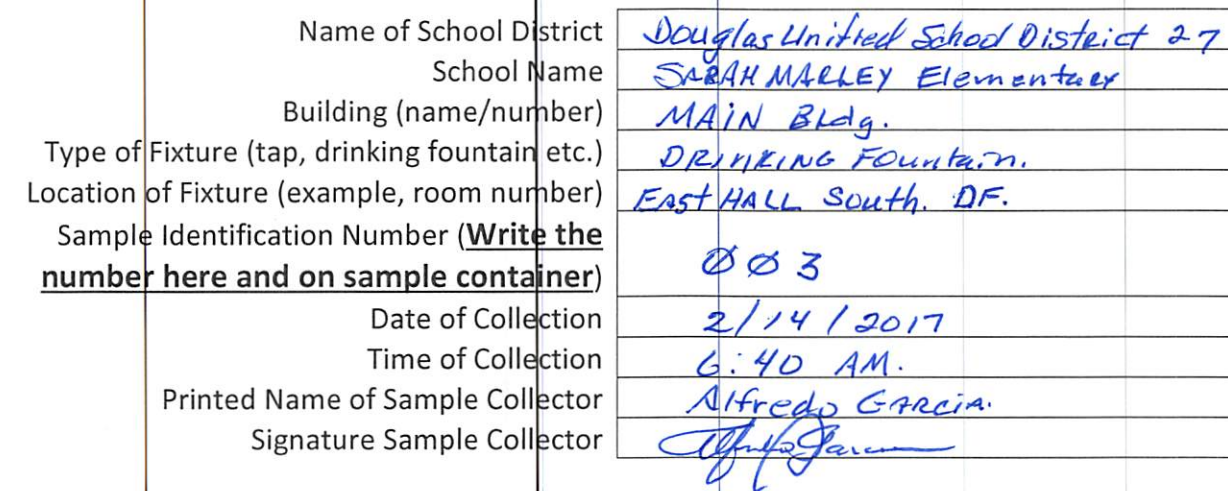 Name of School District Douglas Unified School District 27
School Name SARAH MARLEY Elementary
Building (name/number) MAIN Bldg.
Type of Fixture (tap, drinking fountain etc.) DRINKING Fountain.
Location of Fixture (example, room number) EAST HALL South. DF.
Sample Identification Number (Write the
number here and on sample container) 003
Date of Collection 2/14/2017
Time of Collection 6:40 AM.
Printed Name of Sample Collector Alfredo GARCIA.
Signature Sample Collector Alfredo Garcia